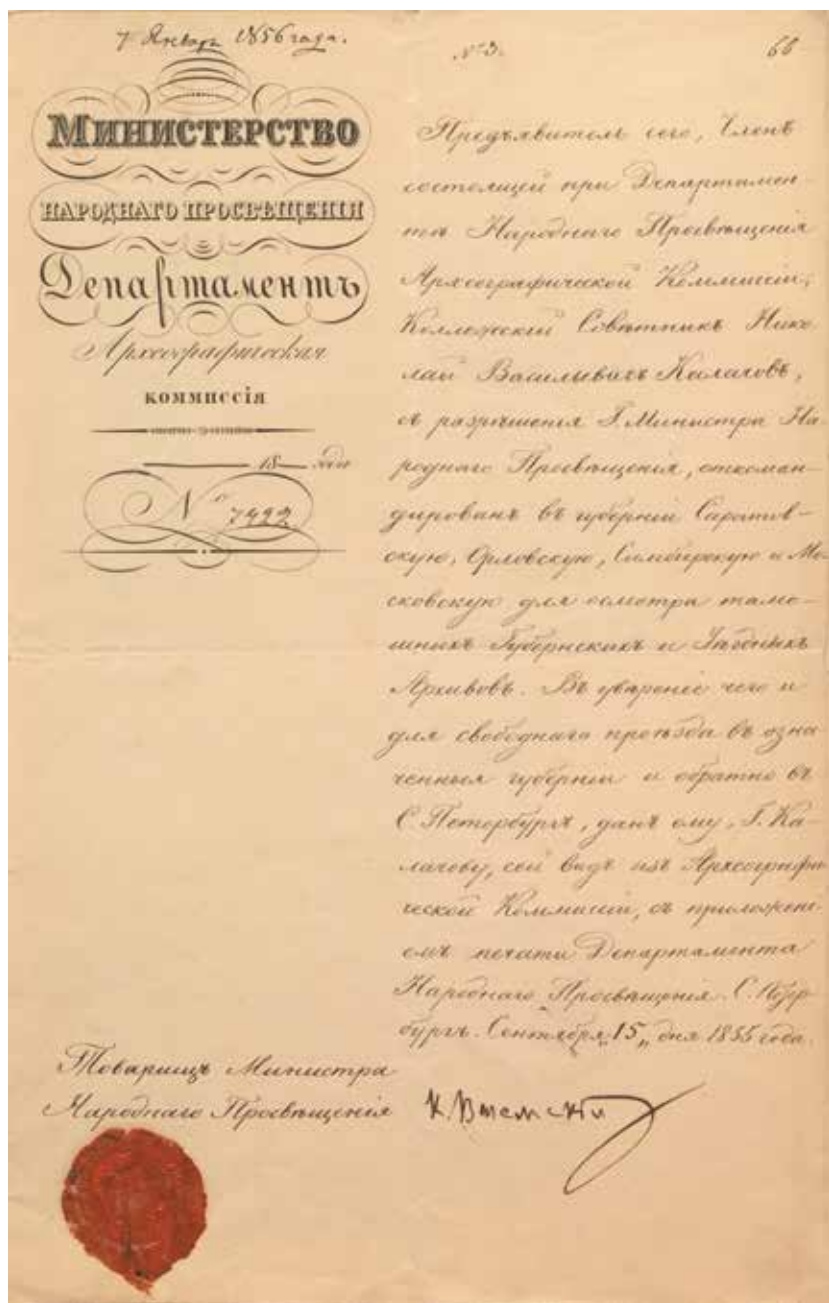 7 Январь 1856 года.
№ 3.
66
Министерство
народнаго просвѣщенія
Департаментъ
Археографическая
коммиссія
18 года
№ 7922
Предъявитель сего, Членъ
состоящей при Департамен-
тѣ Народнаго Просвѣщенія
Археографической Коммисіи,
Коллежскій Совѣтникъ Нико-
лай Васильевичъ Калачовъ,
съ разрѣшенія Г. Министра На-
роднаго Просвѣщенія, откоман-
дированъ въ губерніи Саратов-
скую, Орловскую, Симбирскую и Мо-
сковскую для осмотра тамо-
шнихъ Губернскихъ и Уѣздныхъ
Архивовъ. Въ увѣреніе чего и
для свободнаго проѣзда въ озна-
ченныя губерніи и обратно въ
С. Петербургъ, данъ ему, Г. Ка-
лачову, сей видъ изъ Археографи-
ческой Коммисіи, съ приложені-
емъ печати Департамента
Народнаго Просвѣщенія. С. Петер-
бургъ. Сентября „15„ дня 1855 года.
Товарищъ Министра
Народнаго Просвѣщенія К. Вяземскій